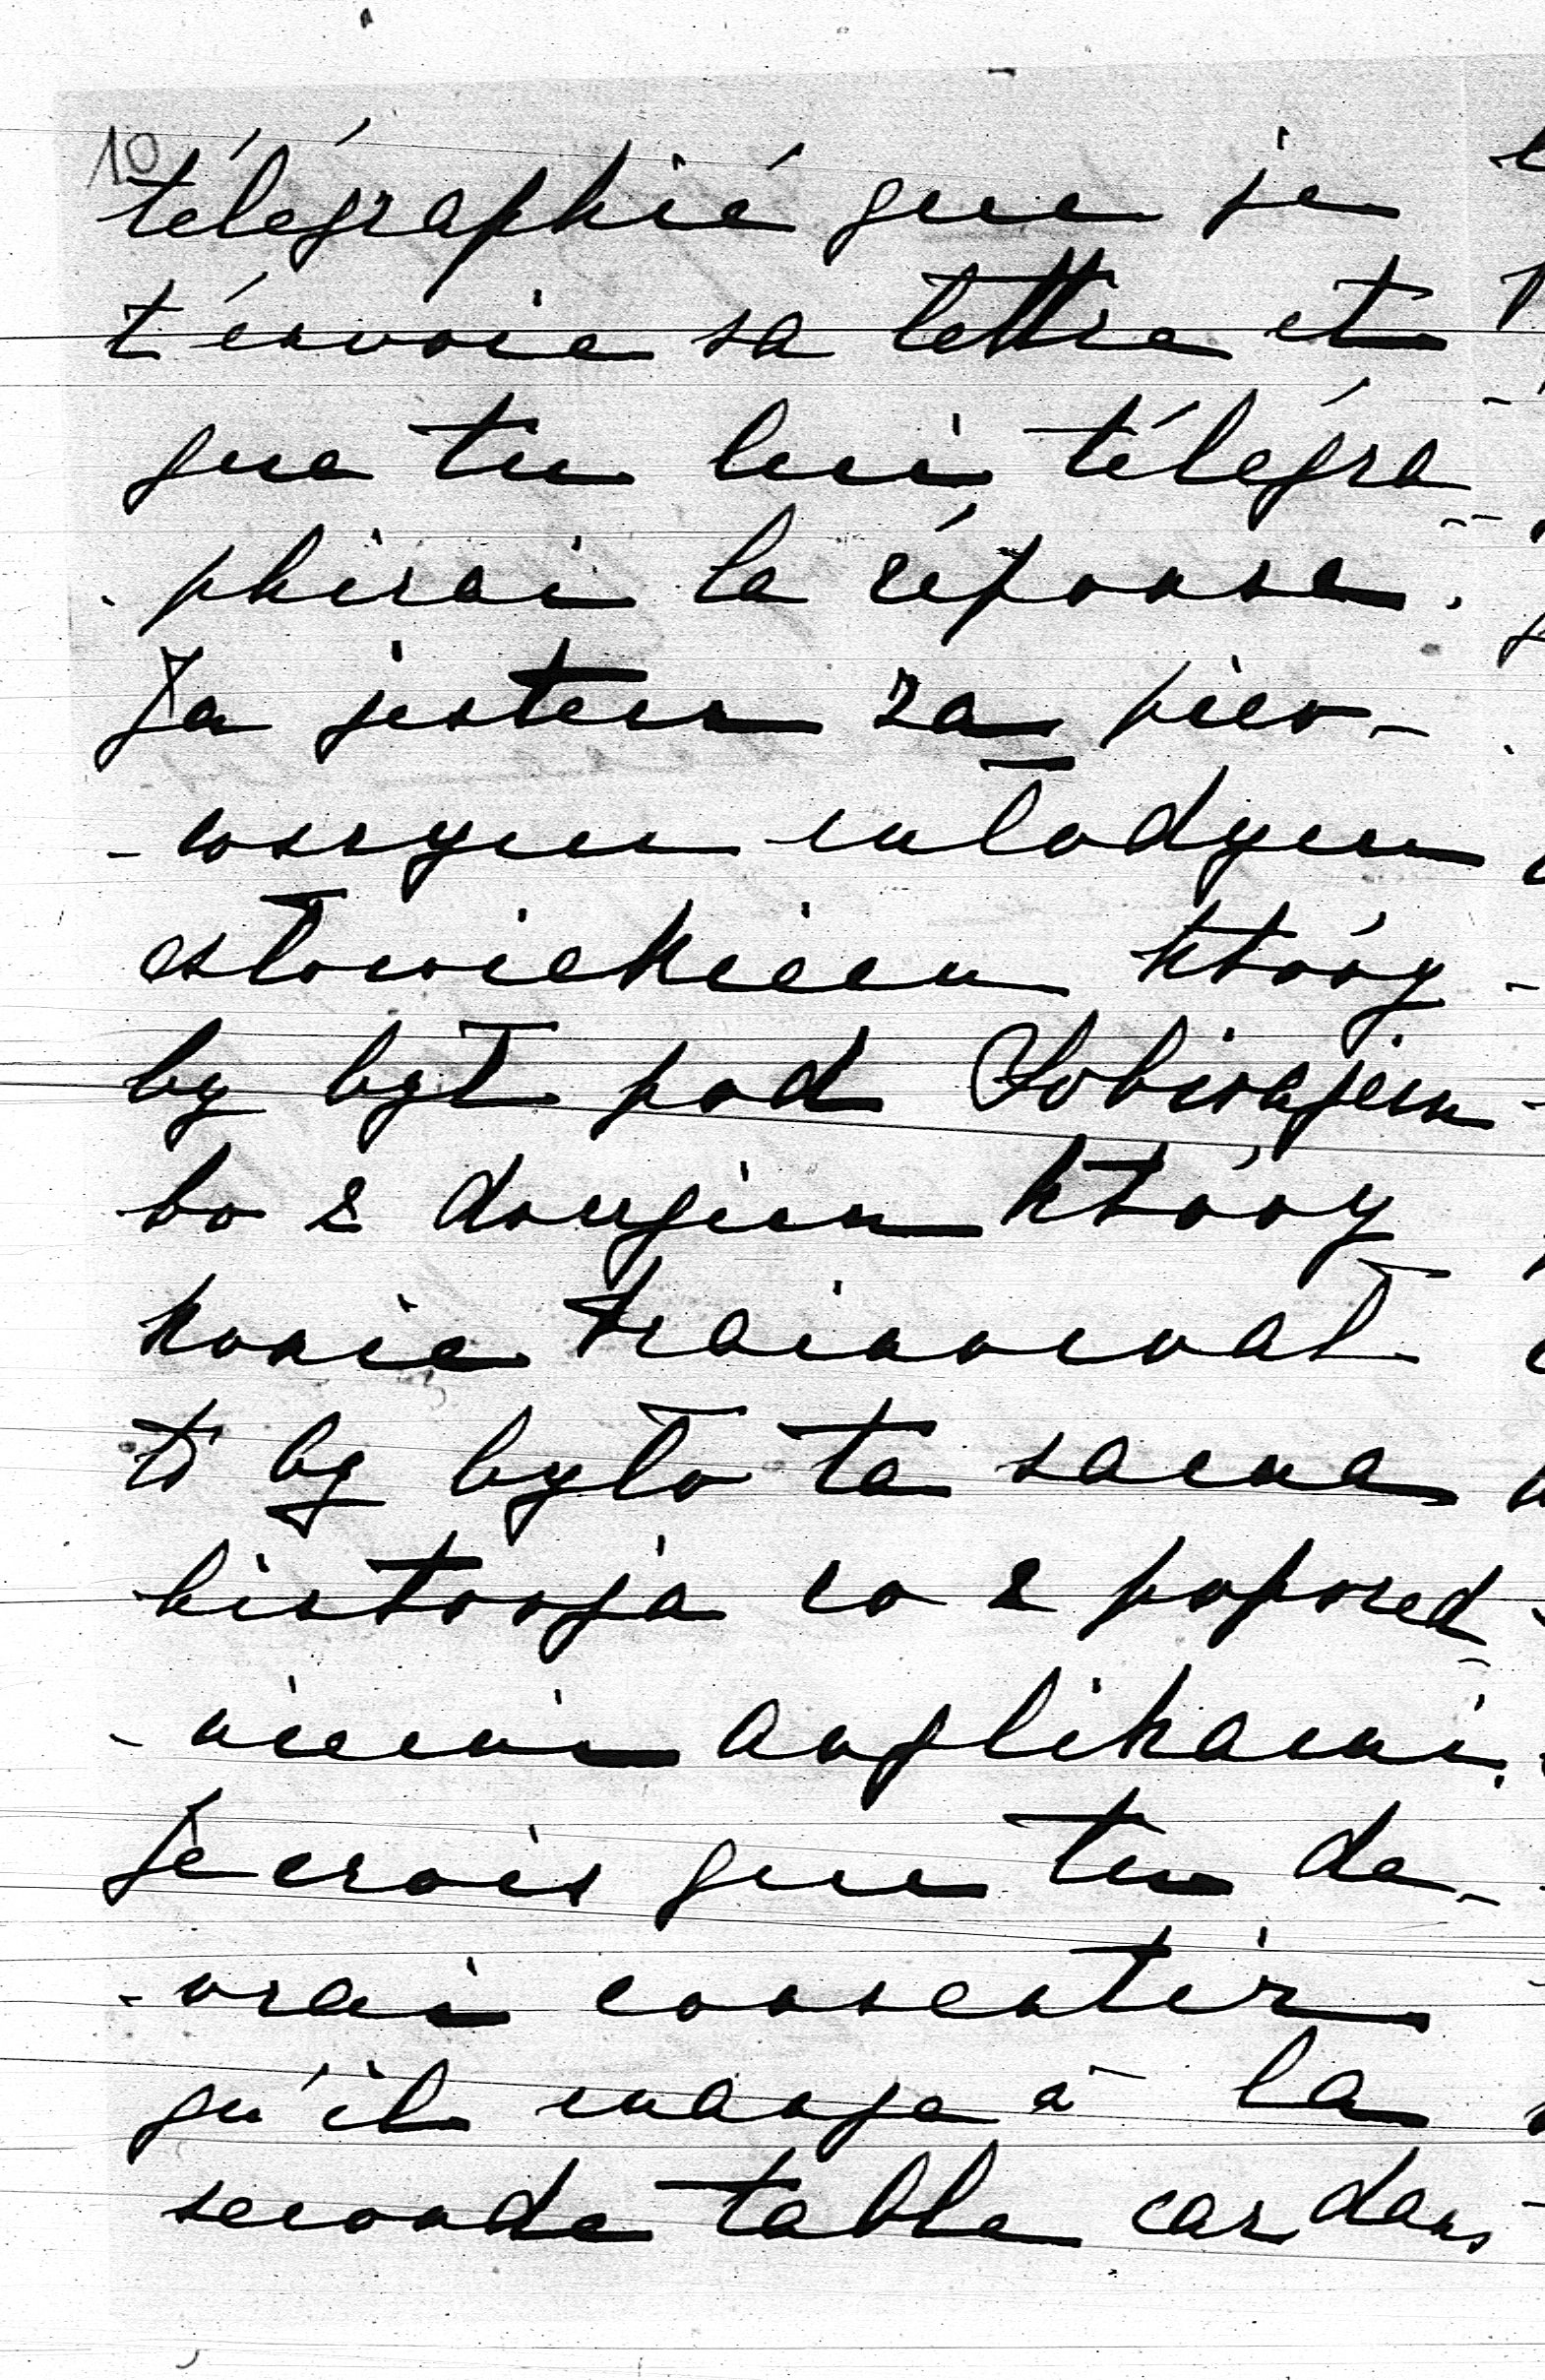 10
télégraphié que je
t'énvoie sa lettre et
que tu lui télégra
phirai la réponse.
Ja jestem za pier-
-wszym młodym
człowiekiem który
by był pod Sobirajem
bo z drugim który
konie trainował
to by było ta sama
historja co z poprzed-
-niemi anglikami.
Je crois que tu de-
-vrai consentir
qu'il mange à la
seconde table car dans